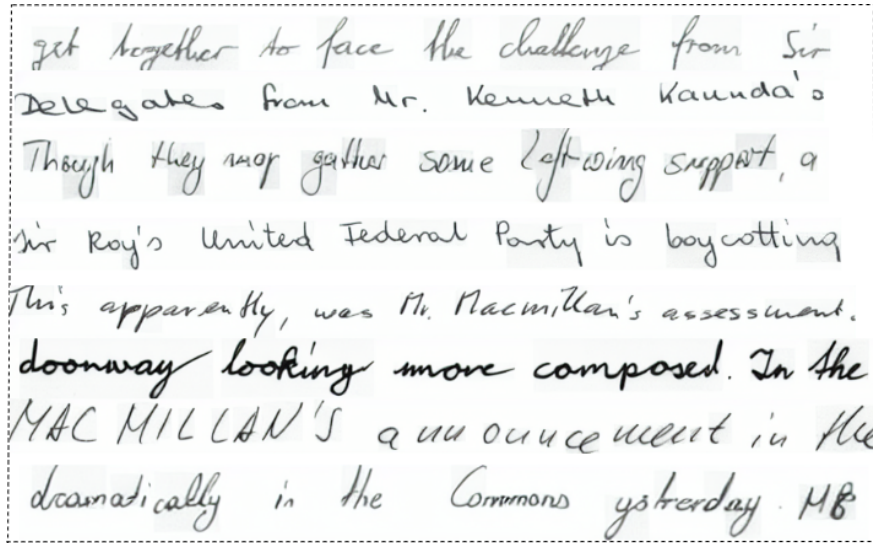 get together to face the challenge from Sir
Delegates from Mr. Kenneth Kaunda's
Though they may gather some left-wing support, a
Sir Roy's United Federal Party is boycotting
This apparently, was Mr. Macmillan's assessment.
doorway looking more composed. In the
MACMILLAN'S announcement in the
dramatically in the Commons yesterday. MB